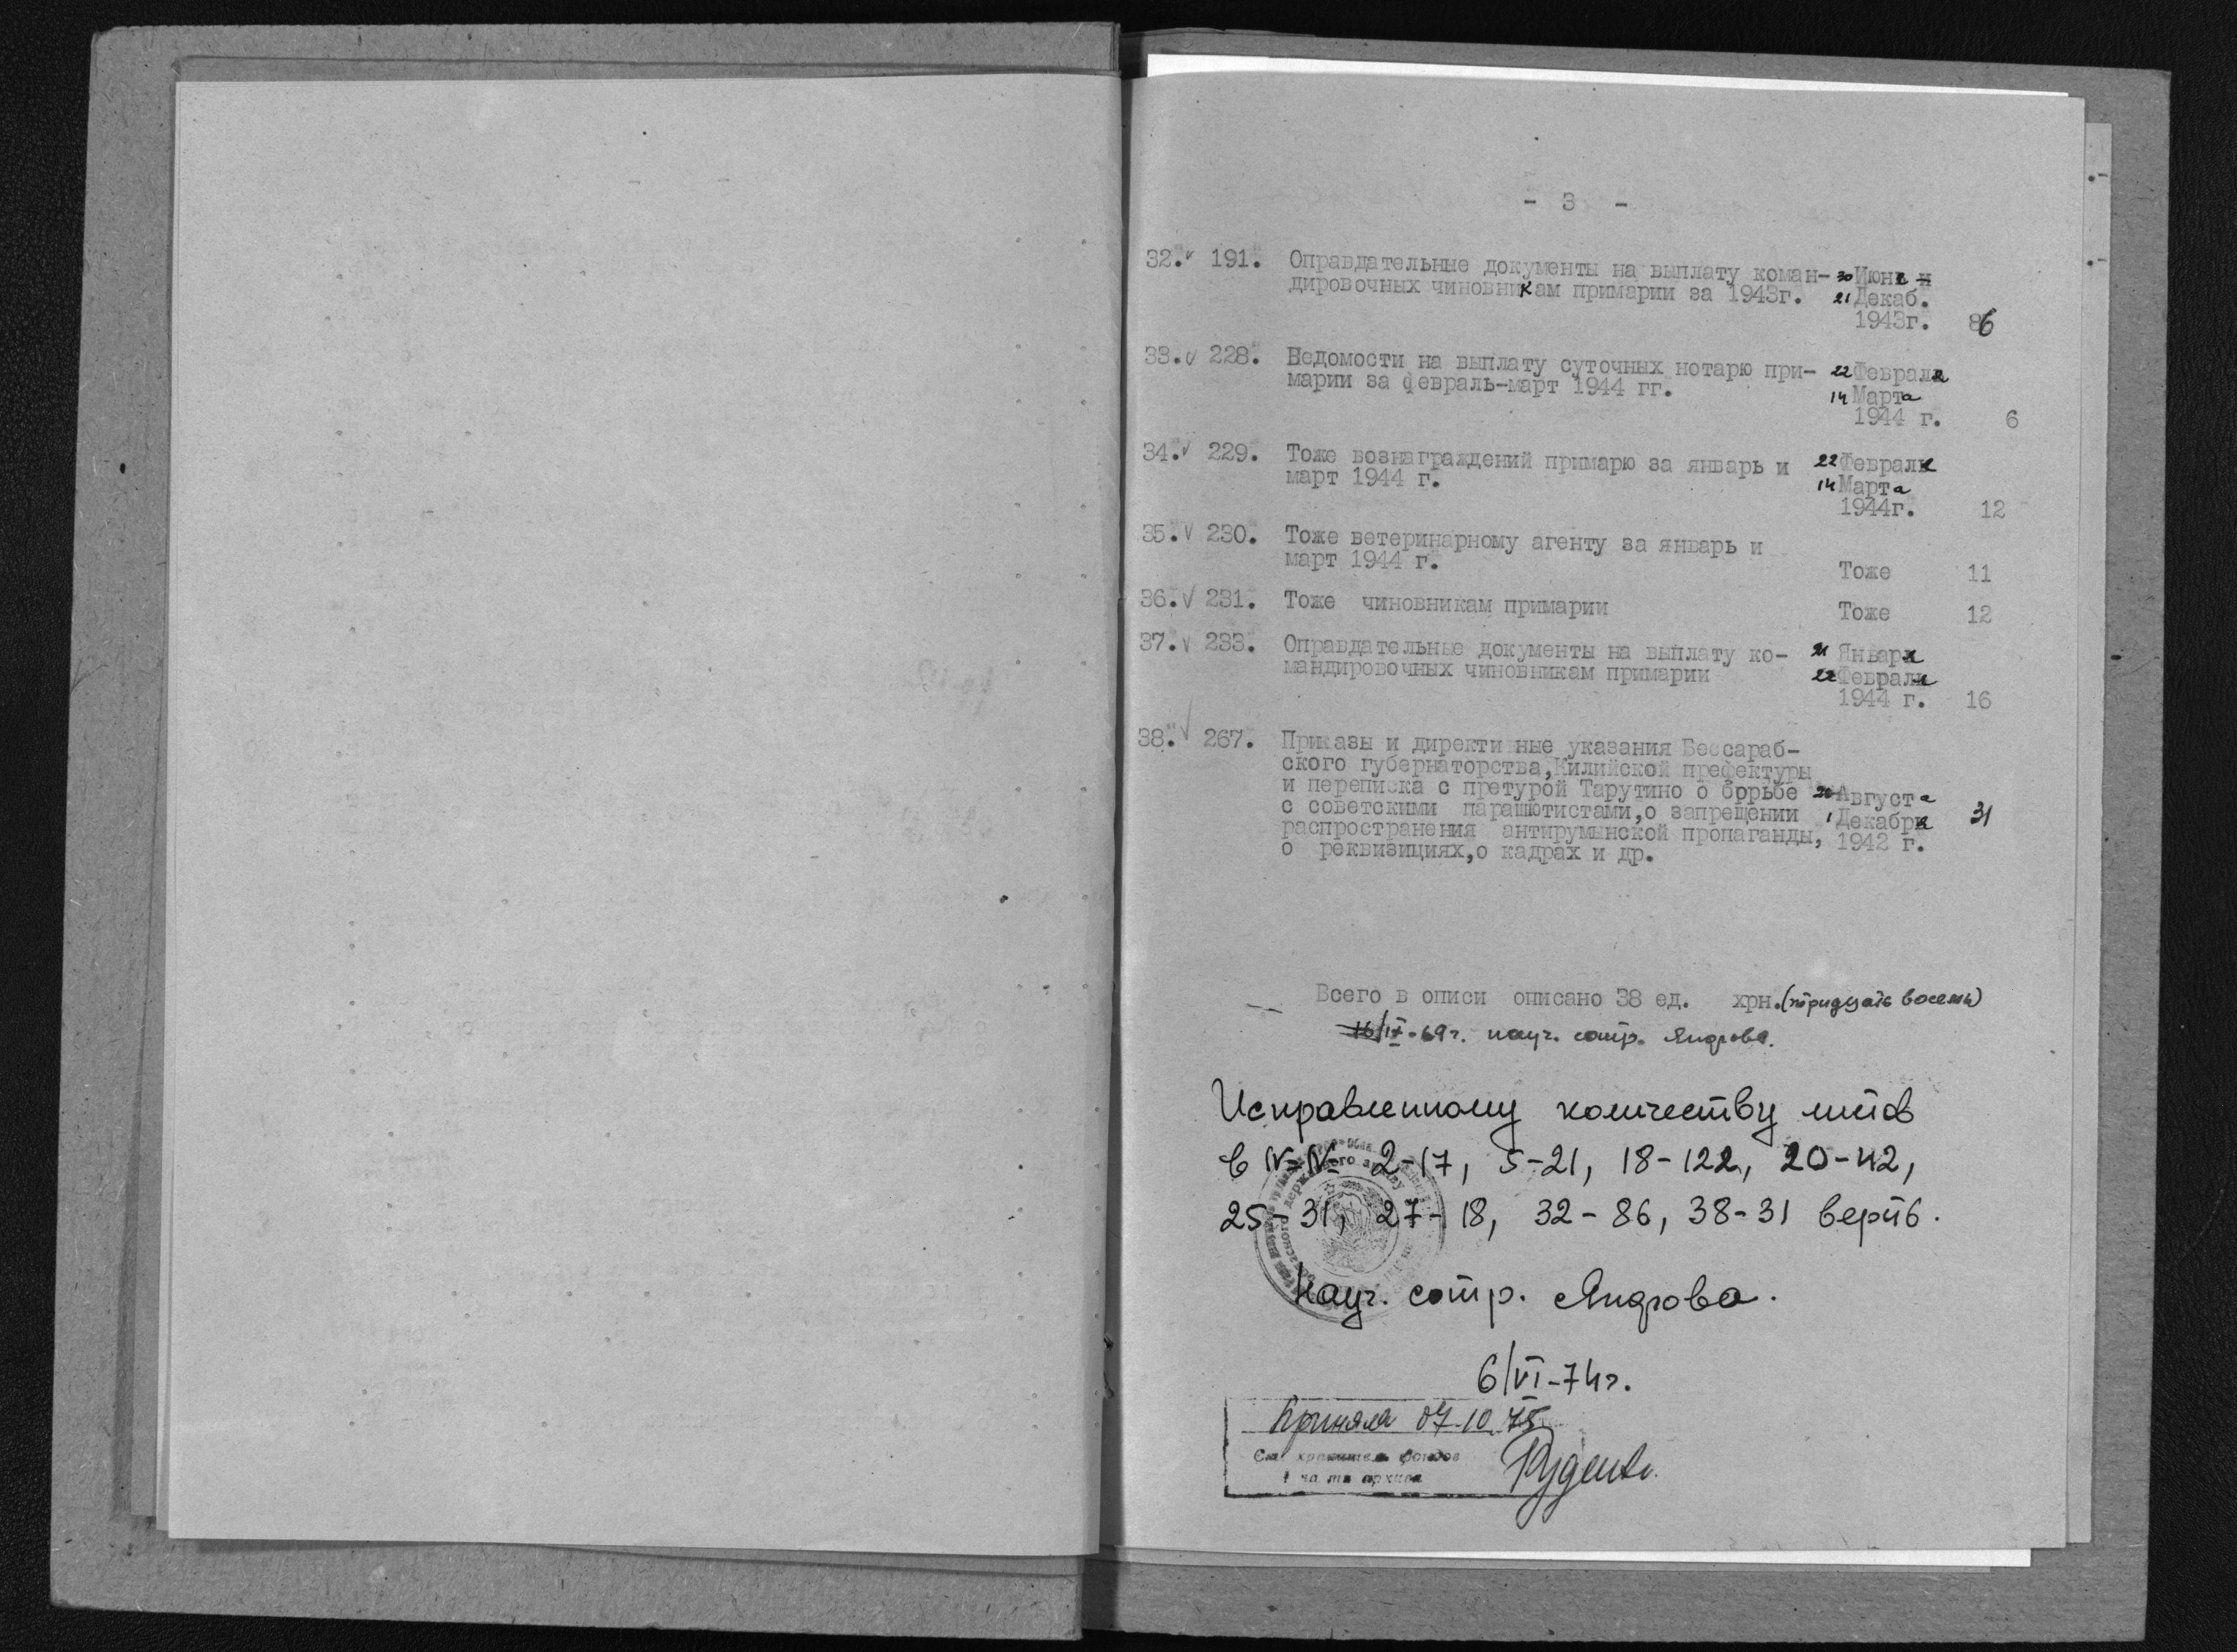 - 3 -
32. 191. Оправдательные документы на выплату коман- 30 Июня
дировочных чиновникам примарии за 1943г. 21 Декаб.
1943г. 86
33. 228. Ведомости на выплату суточных нотарю при- 22 Февраля
марии за февраль-март 1944 гг. 14 Марта
1944 г. 6
34. 229. Тоже вознаграждений примарю за январь и 22 Февраля
март 1944 г. 14 Марта
1944г. 12
35. 230. Тоже ветеринарному агенту за январь и
март 1944 г. Тоже 11
36. 231. Тоже чиновникам примарии Тоже 12
37. 233. Оправдательные документы на выплату ко- 21 Января
мандировочных чиновникам примарии 22 Февраля
1944 г. 16
38. 267. Приказы и директивные указания Бессараб-
ского губернаторства, Килийской префектуры
и переписка с претурой Тарутино о борьбе Августа
с советскими парашютистами, о запрещении 1 Декабря 31
распространения антирумынской пропаганды, 1942 г.
о реквизициях, о кадрах и др.
Всего в описи описано 38 ед. хрн. (тридцать восемь)
69г. науч. сотр. Яндрова.
Исправленному количеству листов
в №№ 2-17, 5-21, 18-122, 20-42,
25-31, 27-18, 32-86, 38-31 верить.
Науч. сотр. Яндрова.
6/VI-74г.
Приняла 07.10.75
фондов
архива